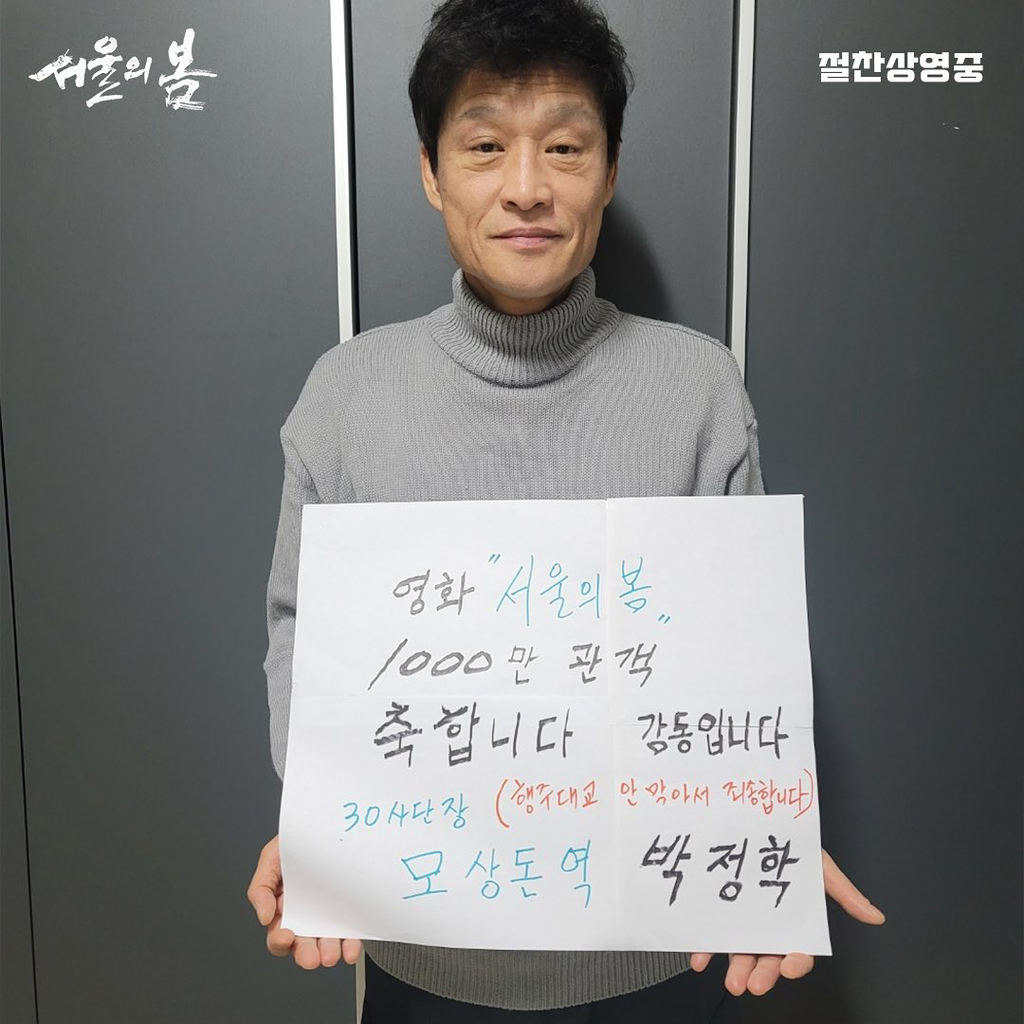 서울의 봄
절찬상영중
영화 "서울의 봄"
1000만 관객
축합니다 감동입니다
30사단장 (행주대교 안 막아서 죄송합니다)
모상돈 역 박정학